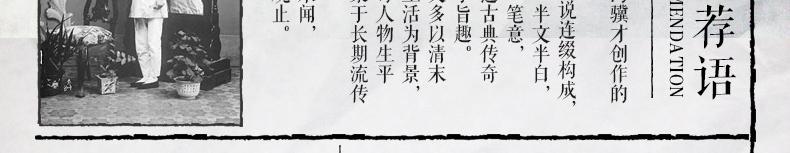 荐语
MENDATION
骥才创作的
说连缀构成，
半文半白，
笔意，
古典传奇
旨趣。
多以清末
生活为背景，
人物生平
于长期流传
闻，
止。